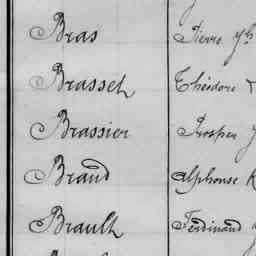 Bras Pierre
Brasseh Théodore
Brassier Prosper
Braud Alphonse
Brault Ferdinand